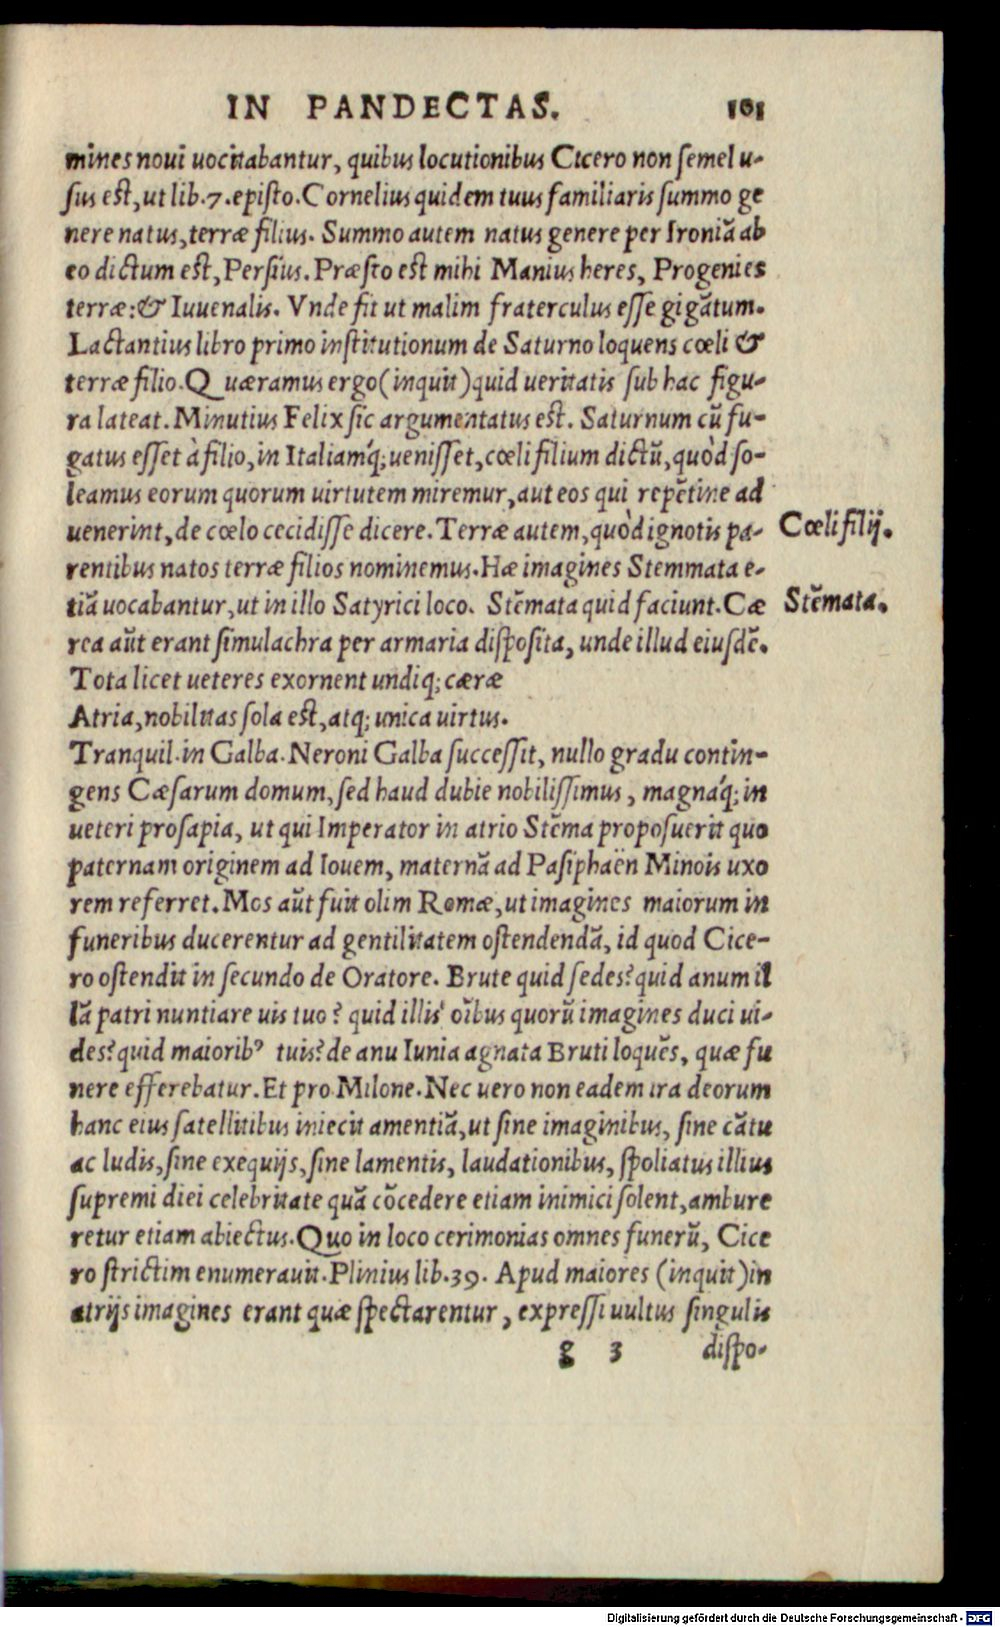 IN PANDECTAS. 101
mines noui uocitabantur, quibus locutionibus Cicero non semel u-
sus est, ut lib. 7. episto. Cornelius quidem tuus familiaris summo ge
nere natus, terræ filius. Summo autem natus genere per Ironiã ab
eo dictum est, Persius. Præsto est mihi Manius heres, Progenies
terræ: & Iuuenalis. Vnde fit ut malim fraterculus esse gigãtum.
Lactantius libro primo institutionum de Saturno loquens cœli &
terræ filio. Quæramus ergo (inquit) quid ueritatis sub hac figu-
ra lateat. Minutius Felix sic argumentatus est. Saturnum cũ fu-
gatus esset à filio, in Italiamq́; uenisset, cœli filium dictũ, quòd so-
leamus eorum quorum uirtutem miremur, aut eos qui repẽtine ad
uenerint, de cœlo cecidisse dicere. Terræ autem, quòd ignotis pa-
Cœli filij.
rentibus natos terræ filios nominemus. Hæ imagines Stemmata e-
tiã uocabantur, ut in illo Satyrici loco. Stẽmata quid faciunt. Cæ
Stẽmata.
rea aũt erant simulachra per armaria disposita, unde illud eiusdẽ.
Tota licet ueteres exornent undiq; cæræ
Atria, nobilitas sola est, atq; unica uirtus.
Tranquil. in Galba. Neroni Galba successit, nullo gradu contin-
gens Cæsarum domum, sed haud dubie nobilissimus, magnaq́; in
ueteri prosapia, ut qui Imperator in atrio Stẽma proposuerit quo
paternam originem ad Iouem, maternã ad Pasiphaën Minois uxo
rem referret. Mos aũt fuit olim Romæ, ut imagines maiorum in
funeribus ducerentur ad gentilitatem ostendendã, id quod Cice-
ro ostendit in secundo de Oratore. Brute quid sedes? quid anum il
lã patri nuntiare uis tuo? quid illis oĩbus quorũ imagines duci ui-
des? quid maiorib⁹ tuis? de anu Iunia agnata Bruti loquẽs, quæ fu
nere efferebatur. Et pro Milone. Nec uero non eadem ira deorum
hanc eius satellitibus iniecit amentiã, ut sine imaginibus, sine cãtu
ac ludis, sine exequijs, sine lamentis, laudationibus, spoliatus illius
supremi diei celebritate quã cõcedere etiam inimici solent, ambure
retur etiam abiectus. Quo in loco cerimonias omnes funerũ, Cice
ro strictim enumerauit. Plinius lib. 39. Apud maiores (inquit) in
atrijs imagines erant quæ spectarentur, expressi uultus singulis
g 3 dispo-
Digitalisierung gefördert durch die Deutsche Forschungsgemeinschaft - DFG